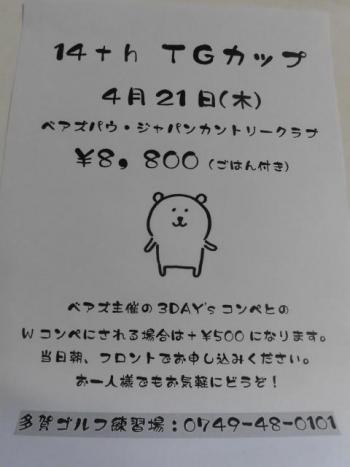 14th TGカップ
4月21日(木)
ベアズパウ・ジャパンカントリークラブ
¥8,800 (ごはん付き)
ベアズ主催の3DAY'sコンペとの
Wコンペにされる場合は+¥500になります。
当日朝、フロントでお申し込みください。
お一人様でもお気軽にどうぞ!
多賀ゴルフ練習場:0749-48-0101